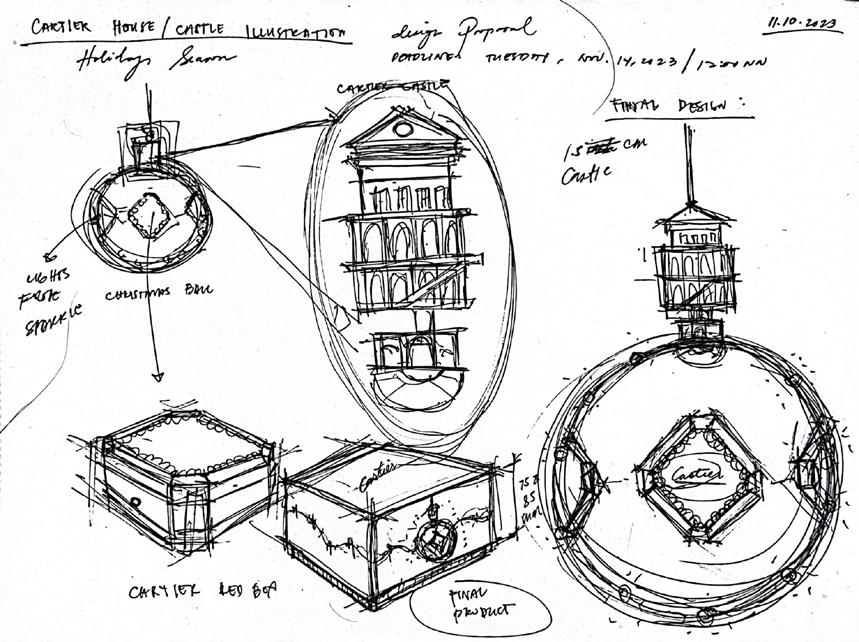 CARTIER HOUSE / CASTLE ILLUSTRATION
Holidays Season
design Proposal
DEADLINE: TUESDAY, NOV. 14, 2023 / 12:00 NN
11.10.2023
CARTIER CASTLE
FINAL DESIGN :
15 cm
Castle
LIGHTS
FROM
SPARKLE
CHRISTMAS BALL
Cartier
Cartier
CARTIER RED BOX
FINAL
PRODUCT